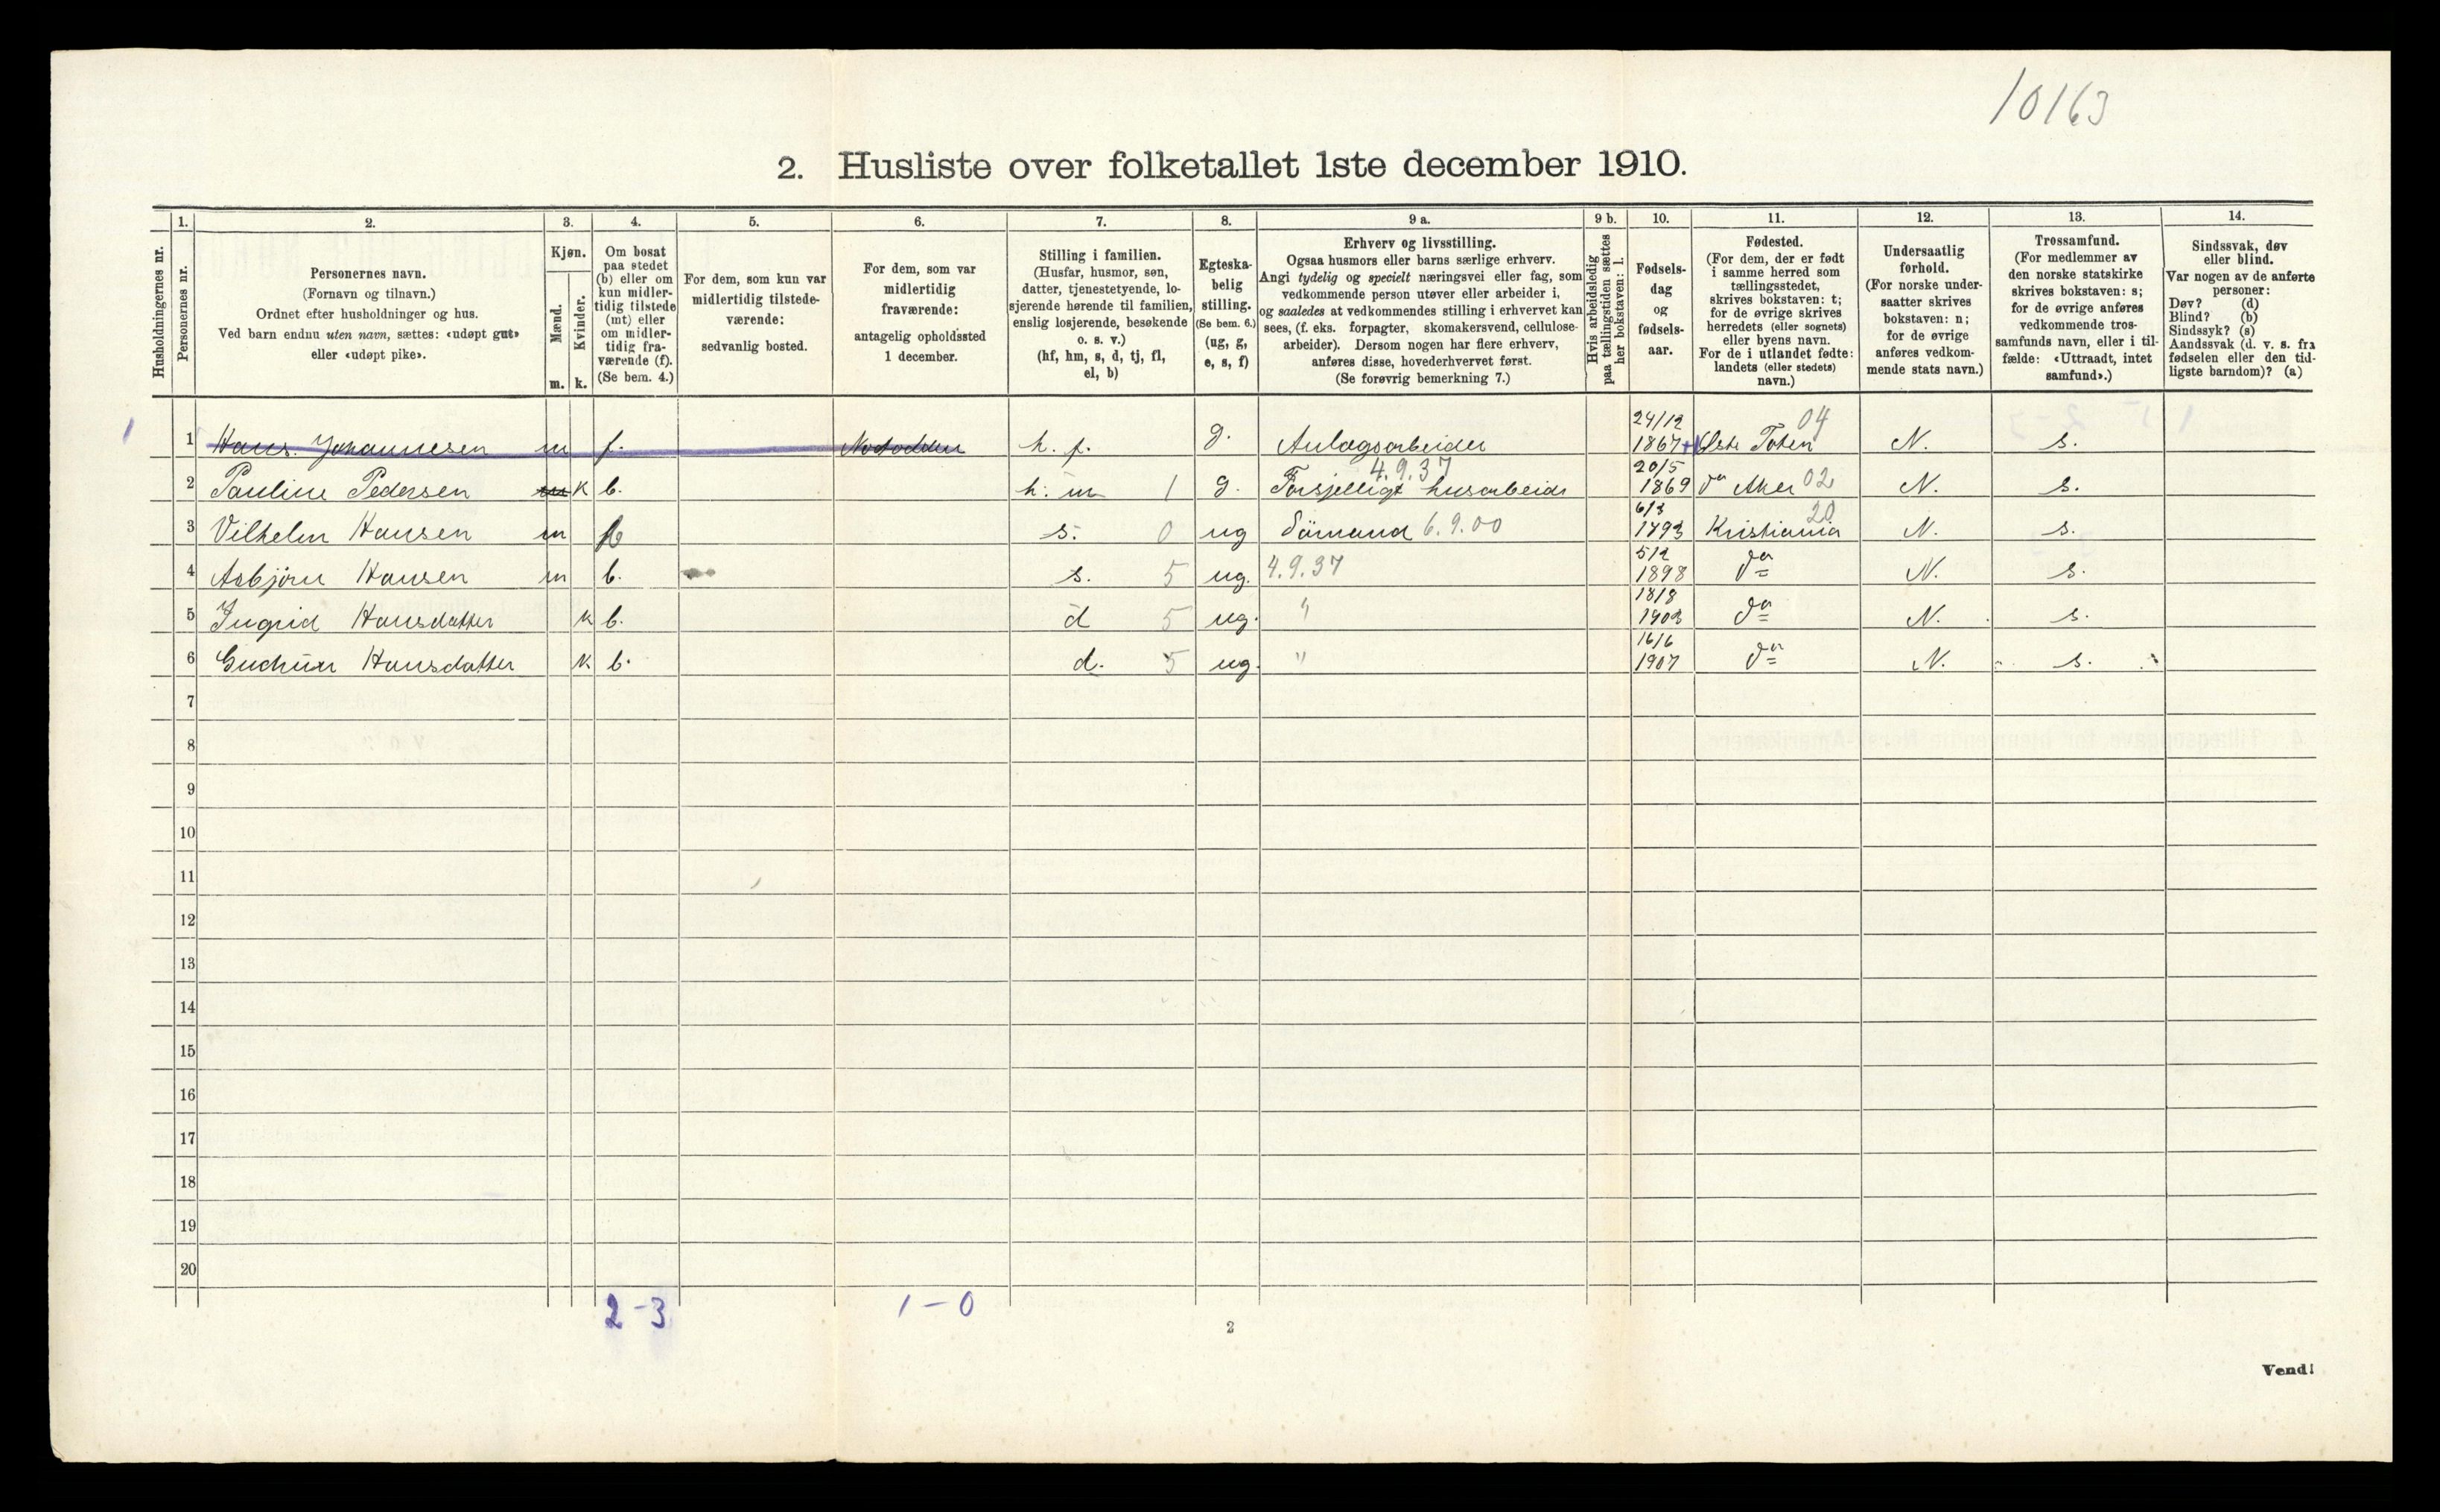 10163
2. Husliste over folketallet 1ste december 1910.
Husholdningernes nr.
1.
Personernes nr.
2.
Personernes navn.
(Fornavn og tilnavn.)
Ordnet efter husholdninger og hus.
Ved barn endnu uten navn, sættes: «udøpt gut»
eller «udøpt pike».
3.
Kjøn.
Mænd.
Kvinder.
m. k.
4.
Om bosat
paa stedet
(b) eller om
kun midler-
tidig tilstede
(mt) eller
om midler-
tidig fra-
værende (f).
(Se bem. 4.)
5.
For dem, som kun var
midlertidig tilstede-
værende:
sedvanlig bosted.
6.
For dem, som var
midlertidig
fraværende:
antagelig opholdssted
1 december.
7.
Stilling i familien.
(Husfar, husmor, søn,
datter, tjenestetyende, lo-
sjerende hørende til familien,
enslig losjerende, besøkende
o. s. v.)
(hf, hm, s, d, tj, fl,
el, b)
8.
Egteska-
belig
stilling.
(Se bem. 6.)
(ug, g,
e, s, f)
9 a.
Erhverv og livsstilling.
Ogsaa husmors eller barns særlige erhverv.
Angi tydelig og specielt næringsvei eller fag, som
vedkommende person utøver eller arbeider i,
og saaledes at vedkommendes stilling i erhvervet kan
sees, (f. eks. forpagter, skomakersvend, cellulose-
arbeider). Dersom nogen har flere erhverv,
anføres disse, hovederhvervet først.
(Se forøvrig bemerkning 7.)
9 b.
Hvis arbeidsledig
paa tællingstiden sættes
her bokstaven: l.
10.
Fødsels-
dag
og
fødsels-
aar.
11.
Fødested.
(For dem, der er født
i samme herred som
tællingsstedet,
skrives bokstaven: t;
for de øvrige skrives
herredets (eller sognets)
eller byens navn.
For de i utlandet fødte:
landets (eller stedets)
navn.)
12.
Undersaatlig
forhold.
(For norske under-
saatter skrives
bokstaven: n;
for de øvrige
anføres vedkom-
mende stats navn.)
13.
Trossamfund.
(For medlemmer av
den norske statskirke
skrives bokstaven: s;
for de øvrige anføres
vedkommende tros-
samfunds navn, eller i til-
fælde: «Uttraadt, intet
samfund».)
14.
Sindssvak, døv
eller blind.
Var nogen av de anførte
personer:
Døv? (d)
Blind? (b)
Sindssyk? (s)
Aandssvak (d. v. s. fra
fødselen eller den tid-
ligste barndom)? (a)
1 1 Hans. Johannesen m f. Notodden h. f. g. Anlægsarbeider 24/12 1867 Østr Toten 04 N. s.
2 Pauline Pedersen m k b. h. m 1 g. Forsjelligt husarbeide 4.9.37 20/5 1869 Aker 02 N. s.
3 Vilhelm Hansen m s. 0 ug Sömand 6.9.00 6/3 1893 Kristiania 20 N. s.
4 Asbjörn Hansen m b. s. 5 ug. 4.9.37 5/2 1898 do N. s.
5 Ingrid Hansdatter k b. d 5 ug. " 18/8 1903 do N. s.
6 Gudrun Hansdatter k b. d. 5 ug. " 16/6 1907 do N. s.
7
8
9
10
11
12
13
14
15
16
17
18
19
20
2-3 1-0
2
Vend!